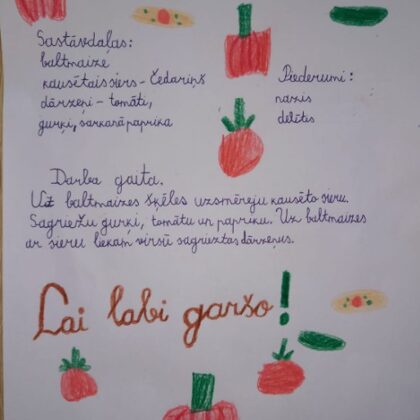 Sastāvdaļas:
baltmaize
kausētais siers - Čedariņš
dārzeņi - tomāti,
gurķi, sarkanā paprika
Piederumi:
nazis
dēlītis
Darba gaita.
Uz baltmaizes šķēles uzsmērēju kausēto sieru.
Sagriežu gurķi, tomātu un papriku. Uz baltmaizes
ar sieru liekam virsū sagrieztos dārzeņus.
Lai labi garšo!